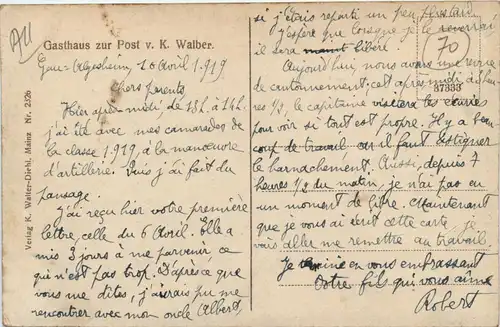 All
Gasthaus zur Post v. K. Walber.
Gau-Algesheim, 10 Avril 1919
Chers parents
Hier après-midi, de 13h. à 14h.
j'ai été avec mes camarades de
la classe 1919, à la manœuvre
d'artillerie. Puis j'ai fait du
pansage.
J'ai reçu hier votre première
lettre, celle du 6 Avril. Elle a
mis 3 jours à me parvenir, ce
qui n'est pas trop. D'après ce que
vous me dites, j'aurais pu me
rencontrer avec mon oncle Albert,
Verlag K. Walter-Diehl, Mainz Nr. 2/26
si j'étais reparti un peu plus tard
J'espère que lorsque je le reverrai
il sera libéré.
Aujourd'hui, nous avons une revue
de cantonnement; cet après midi, à
heures 1/2, le capitaine visitera les écuries
pour voir si tout est propre. Il y a beau-
coup de travail car il faut astiquer
le harnachement. Aussi, depuis 7
heures 1/2 du matin, je n'ai pas eu
un moment de libre. Maintenant
que je vous ai écrit cette carte, je
vais aller me remettre au travail.
Je termine en vous embrassant
Votre fils qui vous aime
Robert
70
87333